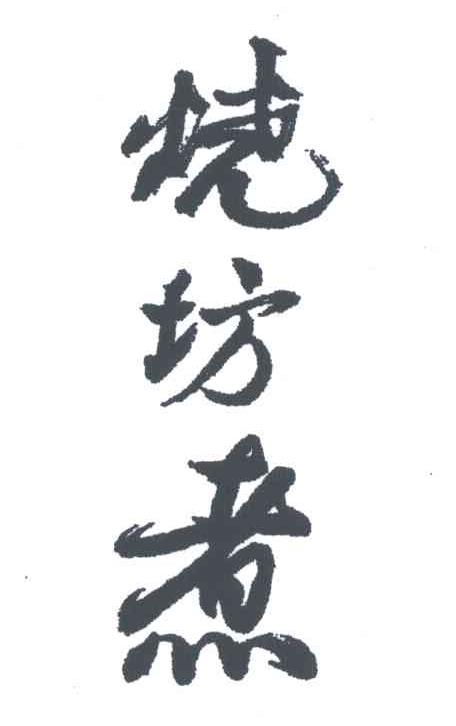 烧坊煮